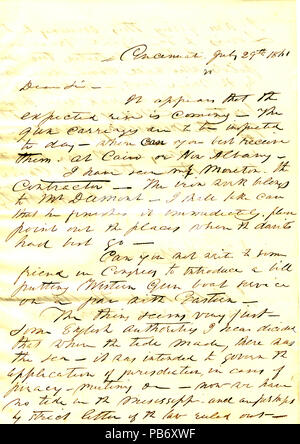 Cincinnati July 29th 1861
Dear Sir -
It appears that the
expected rise is coming - The
gun carriages are to be inspected
to day - where can you best receive
them. at Cairo or New Albany -
I have seen Mr Morton. the
Contractor - The iron work belongs
to Mr Dumont - I shall take care
that he finishes it immediately. please
point out the places where the
had best go -
Can you not write to some
friend in Congress to introduce a bill
putting Western Gun boat service
on a par with Eastern -
The thing seems very just -
Some English Authority I hear decided
that when the tide made, there was
the sea - It was intended to govern the
application of jurisdiction, in cases of
piracy - mutiny &c - now we have
no tide in the Mississippi - and perhaps
by strict letter of the law ruled out -
alamy
Image ID: PB6XWF
www.alamy.com